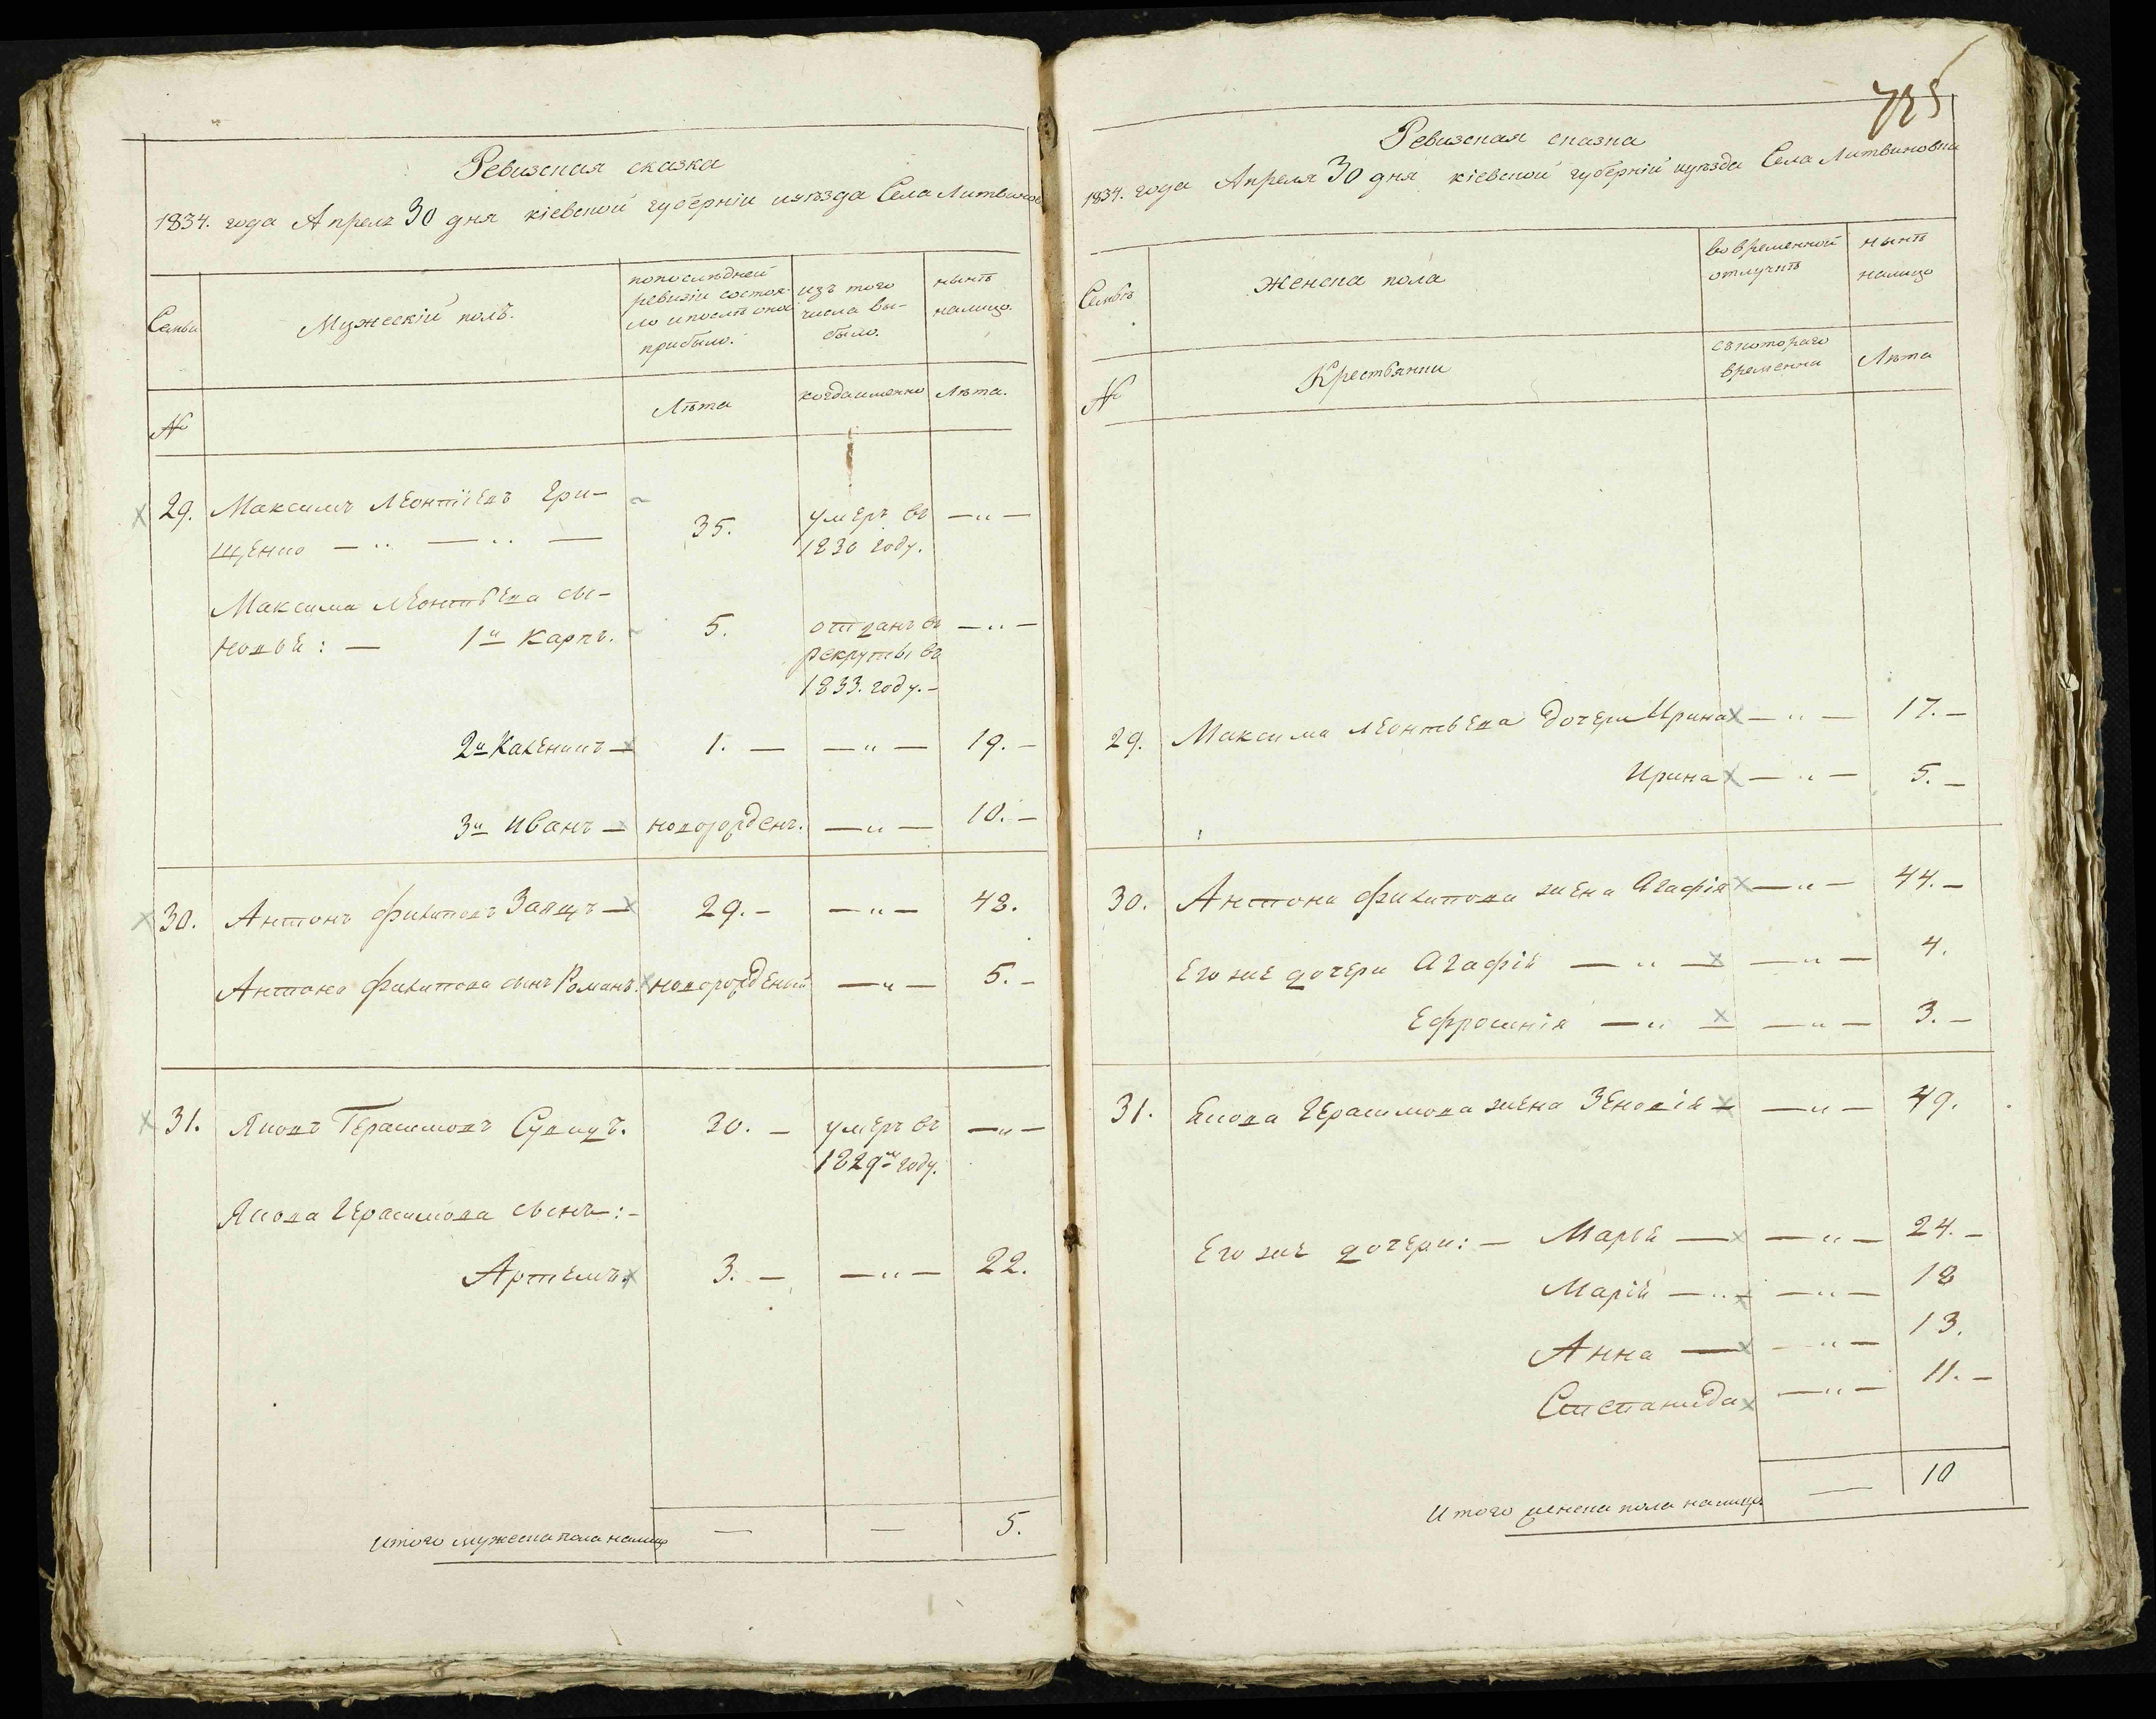 Ревизская сказка
1834. года Апреля 30 дня кіевской губерніи иуѣзда Села Литвинов
Семьи
Мужескій полъ.
попослѣдней
ревизіи состоя-
ло ипослѣ оной
прибыло.
изъ того
числа вы-
было.
нынѣ
налицо.
№
Лѣта
когдаименно
Лѣта.
29. Максимъ Леонтіевъ Гри-
щенко — „ — „ — 35. умеръ въ — „ —
1830 году.
Максима Леонтьева сы-
новья: — 1й Карпъ. 5. отданъ въ — „ —
рекруты въ
1833. году. -
2й Каленикъ — 1. — — „ — 19. -
3й Иванъ — новорожденъ. — „ — 10. -
30. Антонъ Филиповъ Заяцъ — 29. - — „ — 48.
Антона Филипова сынъ Романъ. новорожденый — „ — 5. -
31. Яковъ Герасимовъ Сувидъ. 30. - умеръ въ — „ —
1829м году.
Якова Герасимова сынъ: -
Артемъ. 3. — — „ — 22.
итого мужеска пола налицо — — 5.
725
Ревизская сказка
1834. года Апреля 30 дня кіевской губерніи иуѣзда Села Литвиновки
Семьѣ
Женска пола
вовременной
отлучкѣ
нынѣ
налицо
№
Крестьянки
съкотораго
временна
Лѣта
29. Максима Леонтьева дочери Ирина — „ — 17. -
Ирина — „ — 5. -
30. Антона Филипова жена Агафія — „ — 44. -
Его же дочери Агафія — „ — — „ — 4.
Ефросинія — „ — — „ — 3. -
31. Якова Герасимова жена Зеновія — — „ — 49.
Его же дочери: — Марія — — „ — 24. -
Марія — „ - — „ — 18
Анна — — „ — 13.
Степанида — „ — 11. -
Итого женска пола налицо — 10